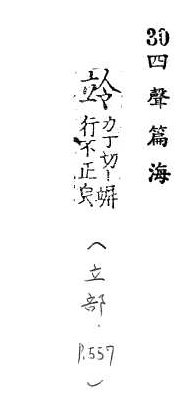 30 四聲篇海
竛
力丁切丨竮
行不正皃
(立部.P.557)